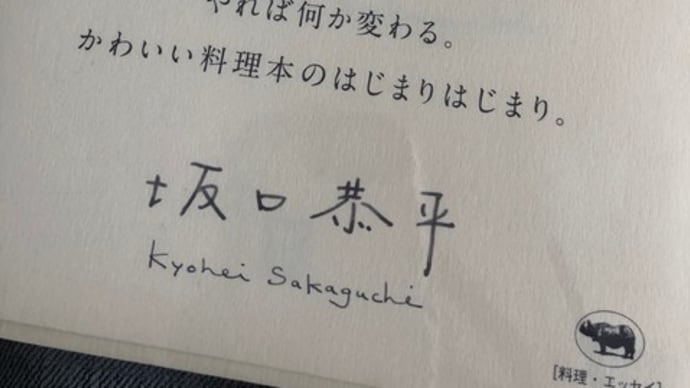 やれば何か変わる。
かわいい料理本のはじまりはじまり。
坂口恭平
Kyohei Sakaguchi
[料理・エッセイ]